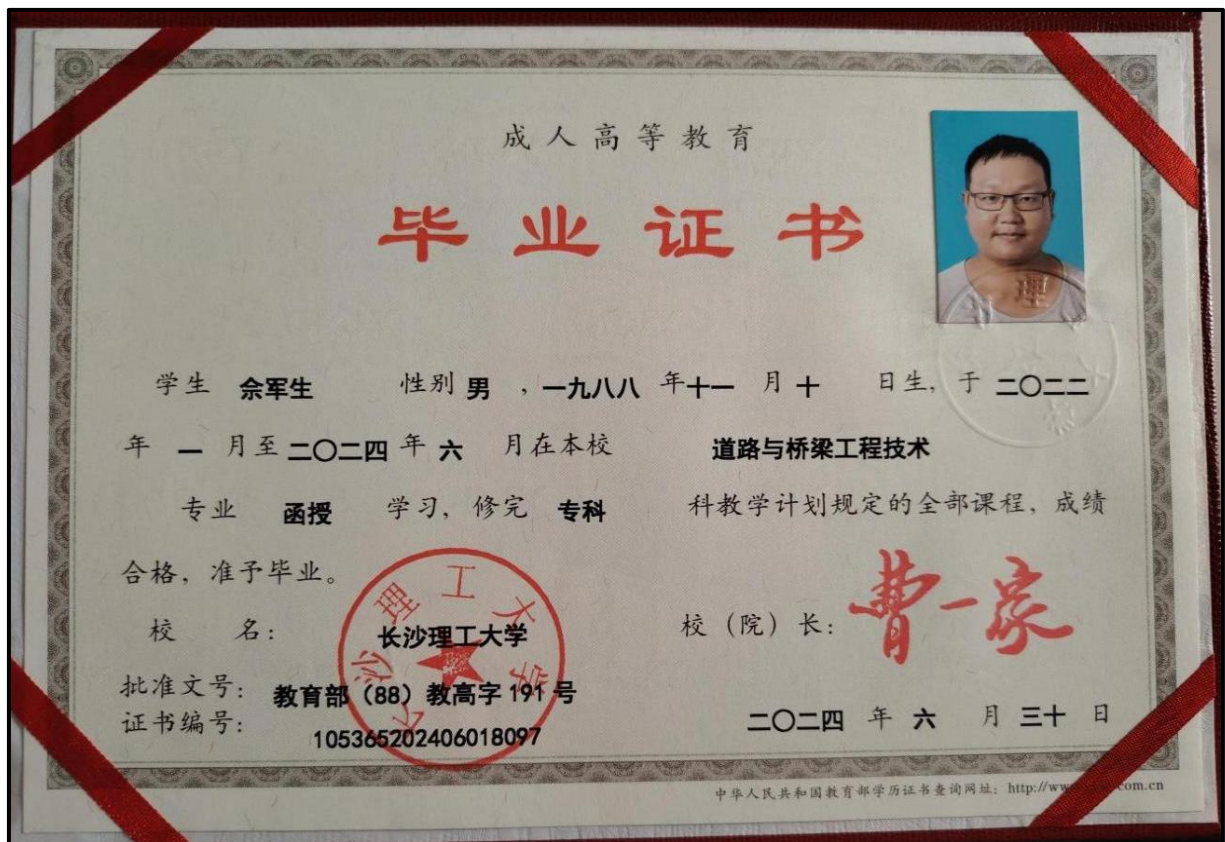 成人高等教育
毕业证书
学生 佘军生 性别 男 ，一九八八 年十一 月 十 日生, 于 二〇二二
年 一 月至 二〇二四 年 六 月在本校 道路与桥梁工程技术
专业 函授 学习, 修完 专科 科教学计划规定的全部课程, 成绩
合格, 准予毕业。
校 名: 长沙理工大学
校（院）长: 曹一家
长沙理工大学
批准文号: 教育部（88）教高字 191 号
证书编号: 105365202406018097
二〇二四 年 六 月 三十 日
中华人民共和国教育部学历证书查询网址: http://ww com.cn